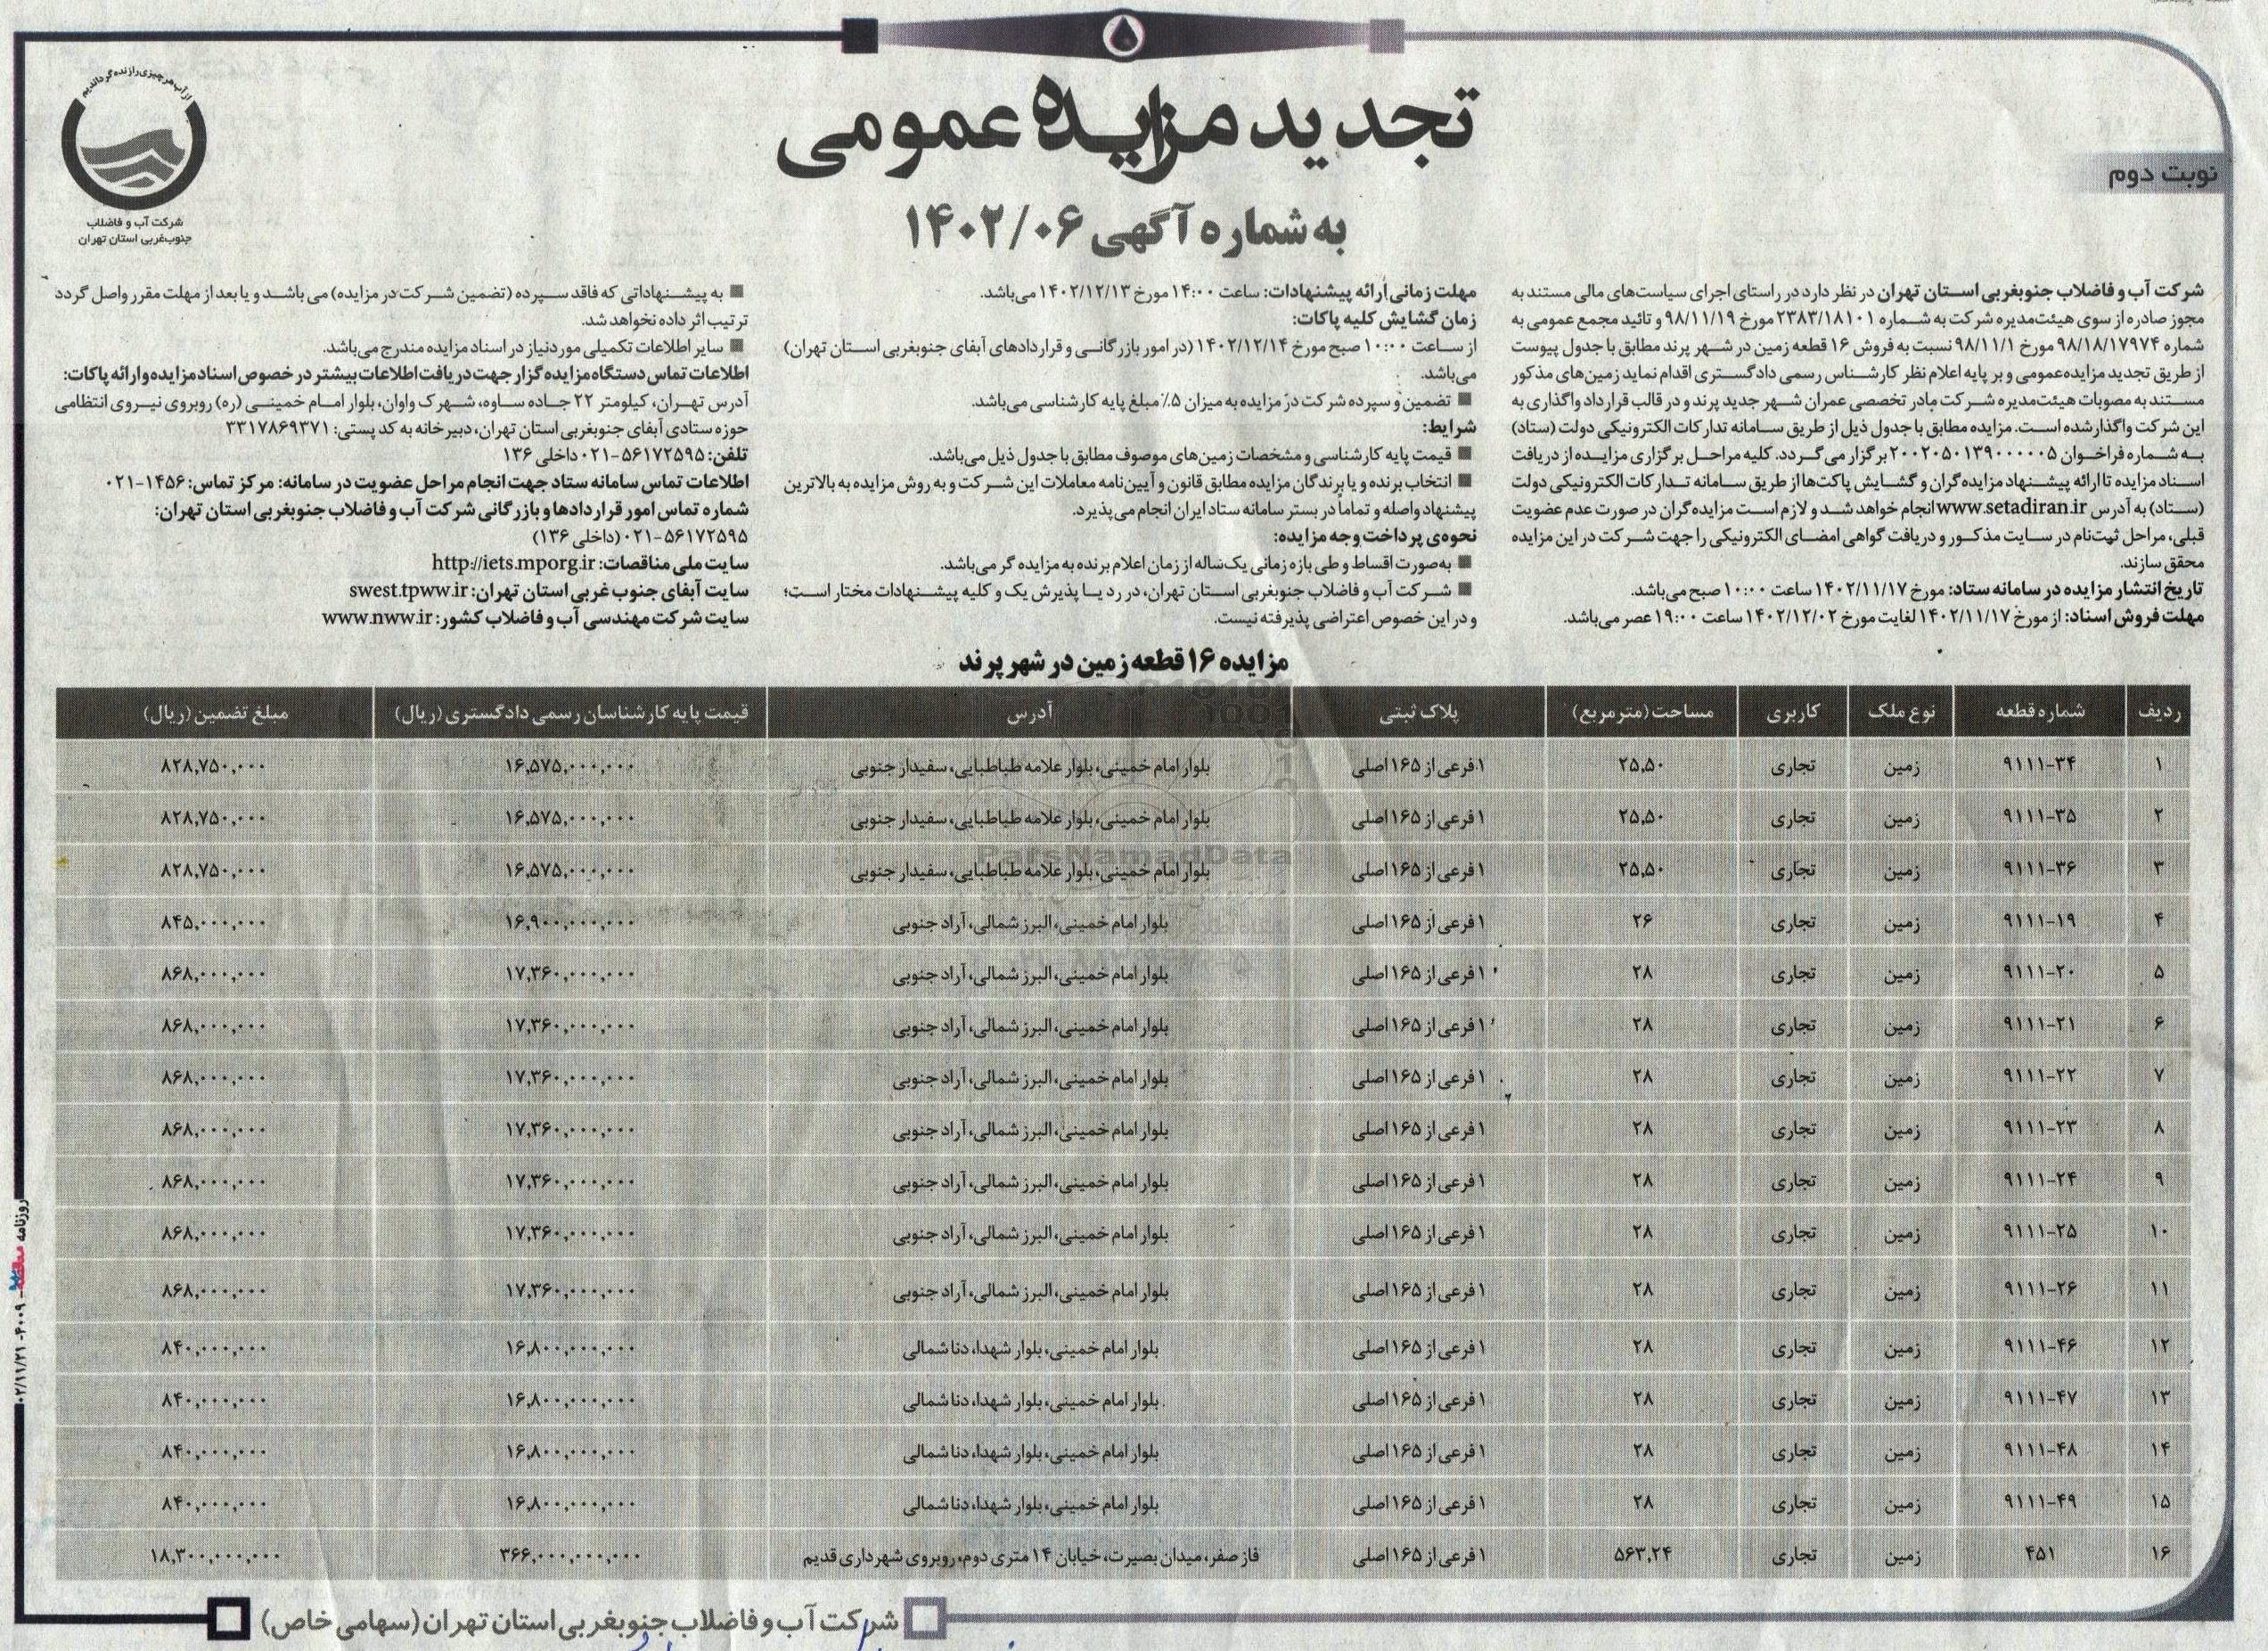 تجدید مزایده عمومی
به شماره آگهی ۱۴۰۲/۰۶
نوبت دوم
از آب هر چیزی را زنده گرداندیم
شرکت آب و فاضلاب
جنوب‌غربی استان تهران
شرکت آب و فاضلاب جنوبغربی استان تهران در نظر دارد در راستای اجرای سیاست‌های مالی مستند به
مجوز صادره از سوی هیئت‌مدیره شرکت به شماره ۲۳۸۳/۱۸۱۰۱ مورخ ۹۸/۱۱/۱۹ و تائید مجمع عمومی به
شماره ۹۸/۱۸/۱۷۹۷۴ مورخ ۹۸/۱۱/۱ نسبت به فروش ۱۶ قطعه زمین در شهر پرند مطابق با جدول پیوست
از طریق تجدید مزایده‌عمومی و بر پایه اعلام نظر کارشناس رسمی دادگستری اقدام نماید زمین‌های مذکور
مستند به مصوبات هیئت‌مدیره شرکت مادر تخصصی عمران شهر جدید پرند و در قالب قرارداد واگذاری به
این شرکت واگذار شده است. مزایده مطابق با جدول ذیل از طریق سامانه تدارکات الکترونیکی دولت (ستاد)
به شماره فراخوان ۲۰۰۲۰۵۰۱۳۹۰۰۰۰۰۵ برگزار می‌گردد. کلیه مراحل برگزاری مزایده از دریافت
اسناد مزایده تا ارائه پیشنهاد مزایده‌گران و گشایش پاکت‌ها از طریق سامانه تدارکات الکترونیکی دولت
(ستاد) به آدرس www.setadiran.ir انجام خواهد شد و لازم است مزایده‌گران در صورت عدم عضویت
قبلی، مراحل ثبت‌نام در سایت مذکور و دریافت گواهی امضای الکترونیکی را جهت شرکت در این مزایده
محقق سازند.
تاریخ انتشار مزایده در سامانه ستاد: مورخ ۱۴۰۲/۱۱/۱۷ ساعت ۱۰:۰۰ صبح می‌باشد.
مهلت فروش اسناد: از مورخ ۱۴۰۲/۱۱/۱۷ لغایت مورخ ۱۴۰۲/۱۲/۰۲ ساعت ۱۹:۰۰ عصر می‌باشد.
مهلت زمانی ارائه پیشنهادات: ساعت ۱۴:۰۰ مورخ ۱۴۰۲/۱۲/۱۳ می‌باشد.
زمان گشایش کلیه پاکات:
از ساعت ۱۰:۰۰ صبح مورخ ۱۴۰۲/۱۲/۱۴ (در امور بازرگانی و قراردادهای آبفای جنوبغربی استان تهران)
می‌باشد.
■ تضمین و سپرده شرکت در مزایده به میزان ۵٪ مبلغ پایه کارشناسی می‌باشد.
شرایط:
■ قیمت پایه کارشناسی و مشخصات زمین‌های موصوف مطابق با جدول ذیل می‌باشد.
■ انتخاب برنده و یا برندگان مزایده مطابق قانون و آیین‌نامه معاملات این شرکت و به روش مزایده به بالاترین
پیشنهاد واصله و تماماً در بستر سامانه ستاد ایران انجام می‌پذیرد.
نحوه‌ی پرداخت وجه مزایده:
■ به‌صورت اقساط و طی بازه زمانی یک‌ساله از زمان اعلام برنده به مزایده گر می‌باشد.
■ شرکت آب و فاضلاب جنوبغربی استان تهران، در رد یا پذیرش یک و کلیه پیشنهادات مختار است؛
و در این خصوص اعتراضی پذیرفته نیست.
■ به پیشنهاداتی که فاقد سپرده (تضمین شرکت در مزایده) می باشد و یا بعد از مهلت مقرر واصل گردد
ترتیب اثر داده نخواهد شد.
■ سایر اطلاعات تکمیلی موردنیاز در اسناد مزایده مندرج می‌باشد.
اطلاعات تماس دستگاه مزایده گزار جهت دریافت اطلاعات بیشتر در خصوص اسناد مزایده و ارائه پاکات:
آدرس تهران، کیلومتر ۲۲ جاده ساوه، شهرک واوان، بلوار امام خمینی (ره) روبروی نیروی انتظامی
حوزه ستادی آبفای جنوبغربی استان تهران، دبیرخانه به کد پستی: ۳۳۱۷۸۶۹۳۷۱
تلفن: ۵۶۱۷۲۵۹۵-۰۲۱ داخلی ۱۳۶
اطلاعات تماس سامانه ستاد جهت انجام مراحل عضویت در سامانه: مرکز تماس: ۱۴۵۶-۰۲۱
شماره تماس امور قراردادها و بازرگانی شرکت آب و فاضلاب جنوبغربی استان تهران:
۵۶۱۷۲۵۹۵-۰۲۱ (داخلی ۱۳۶)
سایت ملی مناقصات: http://iets.mporg.ir
سایت آبفای جنوب غربی استان تهران: swest.tpww.ir
سایت شرکت مهندسی آب و فاضلاب کشور: www.nww.ir
مزایده ۱۶ قطعه زمین در شهر پرند
ردیف شماره قطعه نوع ملک کاربری مساحت (مترمربع) پلاک ثبتی آدرس قیمت پایه کارشناسان رسمی دادگستری (ریال) مبلغ تضمین (ریال)
۱ ۹۱۱۱-۳۴ زمین تجاری ۲۵,۵۰ ۱ فرعی از ۱۶۵ اصلی بلوار امام خمینی، بلوار علامه طباطبایی، سفیدار جنوبی ۱۶,۵۷۵,۰۰۰,۰۰۰ ۸۲۸,۷۵۰,۰۰۰
۲ ۹۱۱۱-۳۵ زمین تجاری ۲۵,۵۰ ۱ فرعی از ۱۶۵ اصلی بلوار امام خمینی، بلوار علامه طباطبایی، سفیدار جنوبی ۱۶,۵۷۵,۰۰۰,۰۰۰ ۸۲۸,۷۵۰,۰۰۰
۳ ۹۱۱۱-۳۶ زمین تجاری ۲۵,۵۰ ۱ فرعی از ۱۶۵ اصلی بلوار امام خمینی، بلوار علامه طباطبایی، سفیدار جنوبی ۱۶,۵۷۵,۰۰۰,۰۰۰ ۸۲۸,۷۵۰,۰۰۰
۴ ۹۱۱۱-۱۹ زمین تجاری ۲۶ ۱ فرعی از ۱۶۵ اصلی بلوار امام خمینی، البرز شمالی، آراد جنوبی ۱۶,۹۰۰,۰۰۰,۰۰۰ ۸۴۵,۰۰۰,۰۰۰
۵ ۹۱۱۱-۲۰ زمین تجاری ۲۸ ۱ فرعی از ۱۶۵ اصلی بلوار امام خمینی، البرز شمالی، آراد جنوبی ۱۷,۳۶۰,۰۰۰,۰۰۰ ۸۶۸,۰۰۰,۰۰۰
۶ ۹۱۱۱-۲۱ زمین تجاری ۲۸ ۱ فرعی از ۱۶۵ اصلی بلوار امام خمینی، البرز شمالی، آراد جنوبی ۱۷,۳۶۰,۰۰۰,۰۰۰ ۸۶۸,۰۰۰,۰۰۰
۷ ۹۱۱۱-۲۲ زمین تجاری ۲۸ ۱ فرعی از ۱۶۵ اصلی بلوار امام خمینی، البرز شمالی، آراد جنوبی ۱۷,۳۶۰,۰۰۰,۰۰۰ ۸۶۸,۰۰۰,۰۰۰
۸ ۹۱۱۱-۲۳ زمین تجاری ۲۸ ۱ فرعی از ۱۶۵ اصلی بلوار امام خمینی، البرز شمالی، آراد جنوبی ۱۷,۳۶۰,۰۰۰,۰۰۰ ۸۶۸,۰۰۰,۰۰۰
۹ ۹۱۱۱-۲۴ زمین تجاری ۲۸ ۱ فرعی از ۱۶۵ اصلی بلوار امام خمینی، البرز شمالی، آراد جنوبی ۱۷,۳۶۰,۰۰۰,۰۰۰ ۸۶۸,۰۰۰,۰۰۰
۱۰ ۹۱۱۱-۲۵ زمین تجاری ۲۸ ۱ فرعی از ۱۶۵ اصلی بلوار امام خمینی، البرز شمالی، آراد جنوبی ۱۷,۳۶۰,۰۰۰,۰۰۰ ۸۶۸,۰۰۰,۰۰۰
۱۱ ۹۱۱۱-۲۶ زمین تجاری ۲۸ ۱ فرعی از ۱۶۵ اصلی بلوار امام خمینی، البرز شمالی، آراد جنوبی ۱۷,۳۶۰,۰۰۰,۰۰۰ ۸۶۸,۰۰۰,۰۰۰
۱۲ ۹۱۱۱-۴۶ زمین تجاری ۲۸ ۱ فرعی از ۱۶۵ اصلی بلوار امام خمینی، بلوار شهدا، دنا شمالی ۱۶,۸۰۰,۰۰۰,۰۰۰ ۸۴۰,۰۰۰,۰۰۰
۱۳ ۹۱۱۱-۴۷ زمین تجاری ۲۸ ۱ فرعی از ۱۶۵ اصلی بلوار امام خمینی، بلوار شهدا، دنا شمالی ۱۶,۸۰۰,۰۰۰,۰۰۰ ۸۴۰,۰۰۰,۰۰۰
۱۴ ۹۱۱۱-۴۸ زمین تجاری ۲۸ ۱ فرعی از ۱۶۵ اصلی بلوار امام خمینی، بلوار شهدا، دنا شمالی ۱۶,۸۰۰,۰۰۰,۰۰۰ ۸۴۰,۰۰۰,۰۰۰
۱۵ ۹۱۱۱-۴۹ زمین تجاری ۲۸ ۱ فرعی از ۱۶۵ اصلی بلوار امام خمینی، بلوار شهدا، دنا شمالی ۱۶,۸۰۰,۰۰۰,۰۰۰ ۸۴۰,۰۰۰,۰۰۰
۱۶ ۴۵۱ زمین تجاری ۵۶۳,۲۴ ۱ فرعی از ۱۶۵ اصلی فاز صفر، میدان بصیرت، خیابان ۱۴ متری دوم، روبروی شهرداری قدیم ۳۶۶,۰۰۰,۰۰۰,۰۰۰ ۱۸,۳۰۰,۰۰۰,۰۰۰
ParsNamadData
شرکت آب و فاضلاب جنوبغربی استان تهران (سهامی خاص)
روزنامه مناقصه - ۴۰۰۹ - ۰۲/۱۱/۲۱